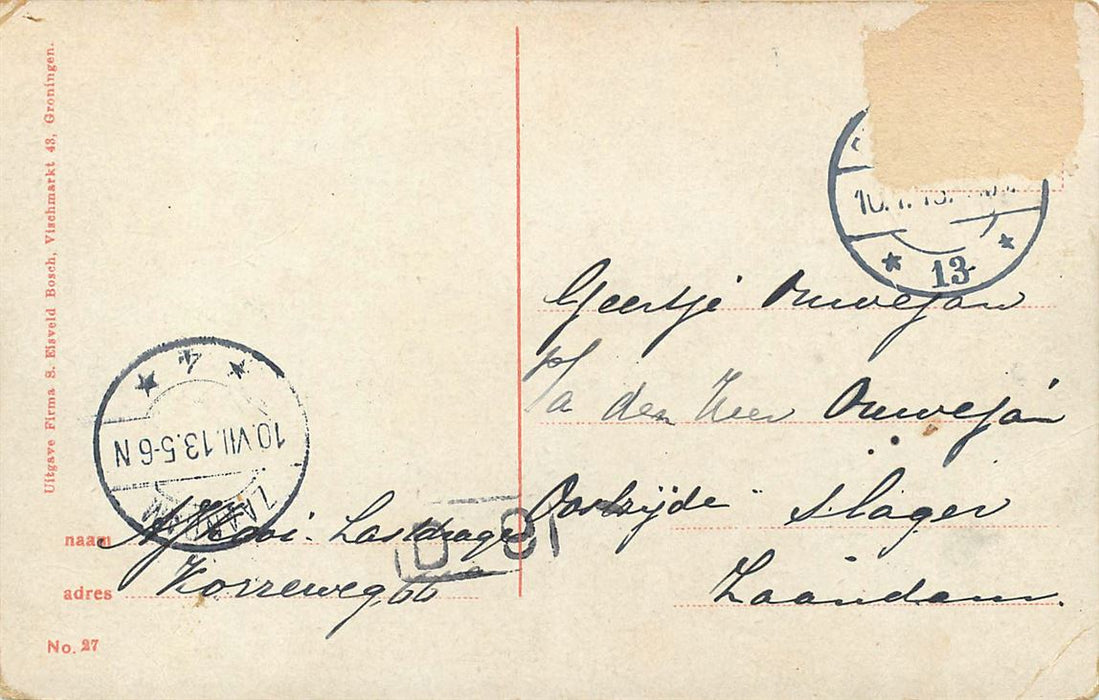 Uitgave Firma S. Eisveld Bosch, Vischmarkt 43, Groningen.
10.
13
Geertje Ouwejan
p/a den Heer Ouwejan
Oostzijde slager
Zaandam.
4
10.VII.13.5-6N
ZAANDAM
naam A Kooi-Lastdrager
adres Korreweg 66
No. 27